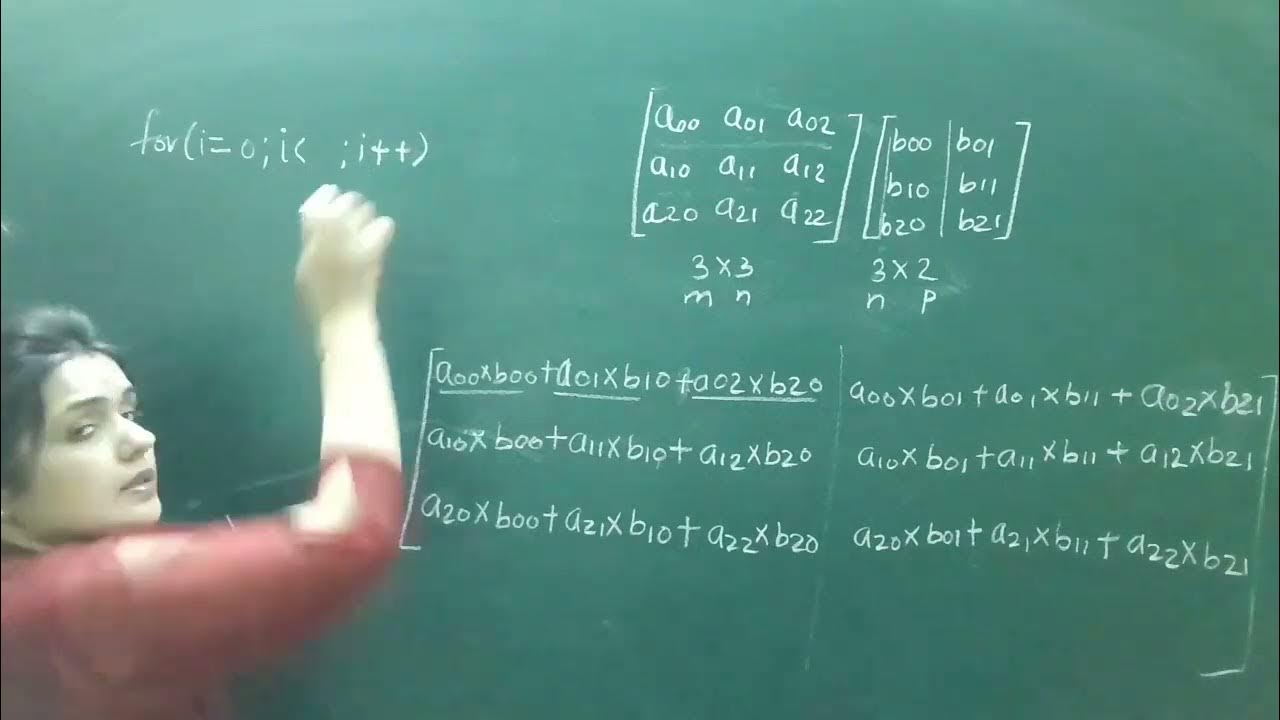 for(i=0;i< ;i++)
a00 a01 a02
a10 a11 a12
a20 a21 a22
b00 b01
b10 b11
b20 b21
3×3 3×2
m n n p
a00×b00+a01×b10+a02×b20 a00×b01+a01×b11+a02×b21
a10×b00+a11×b10+a12×b20 a10×b01+a11×b11+a12×b21
a20×b00+a21×b10+a22×b20 a20×b01+a21×b11+a22×b21